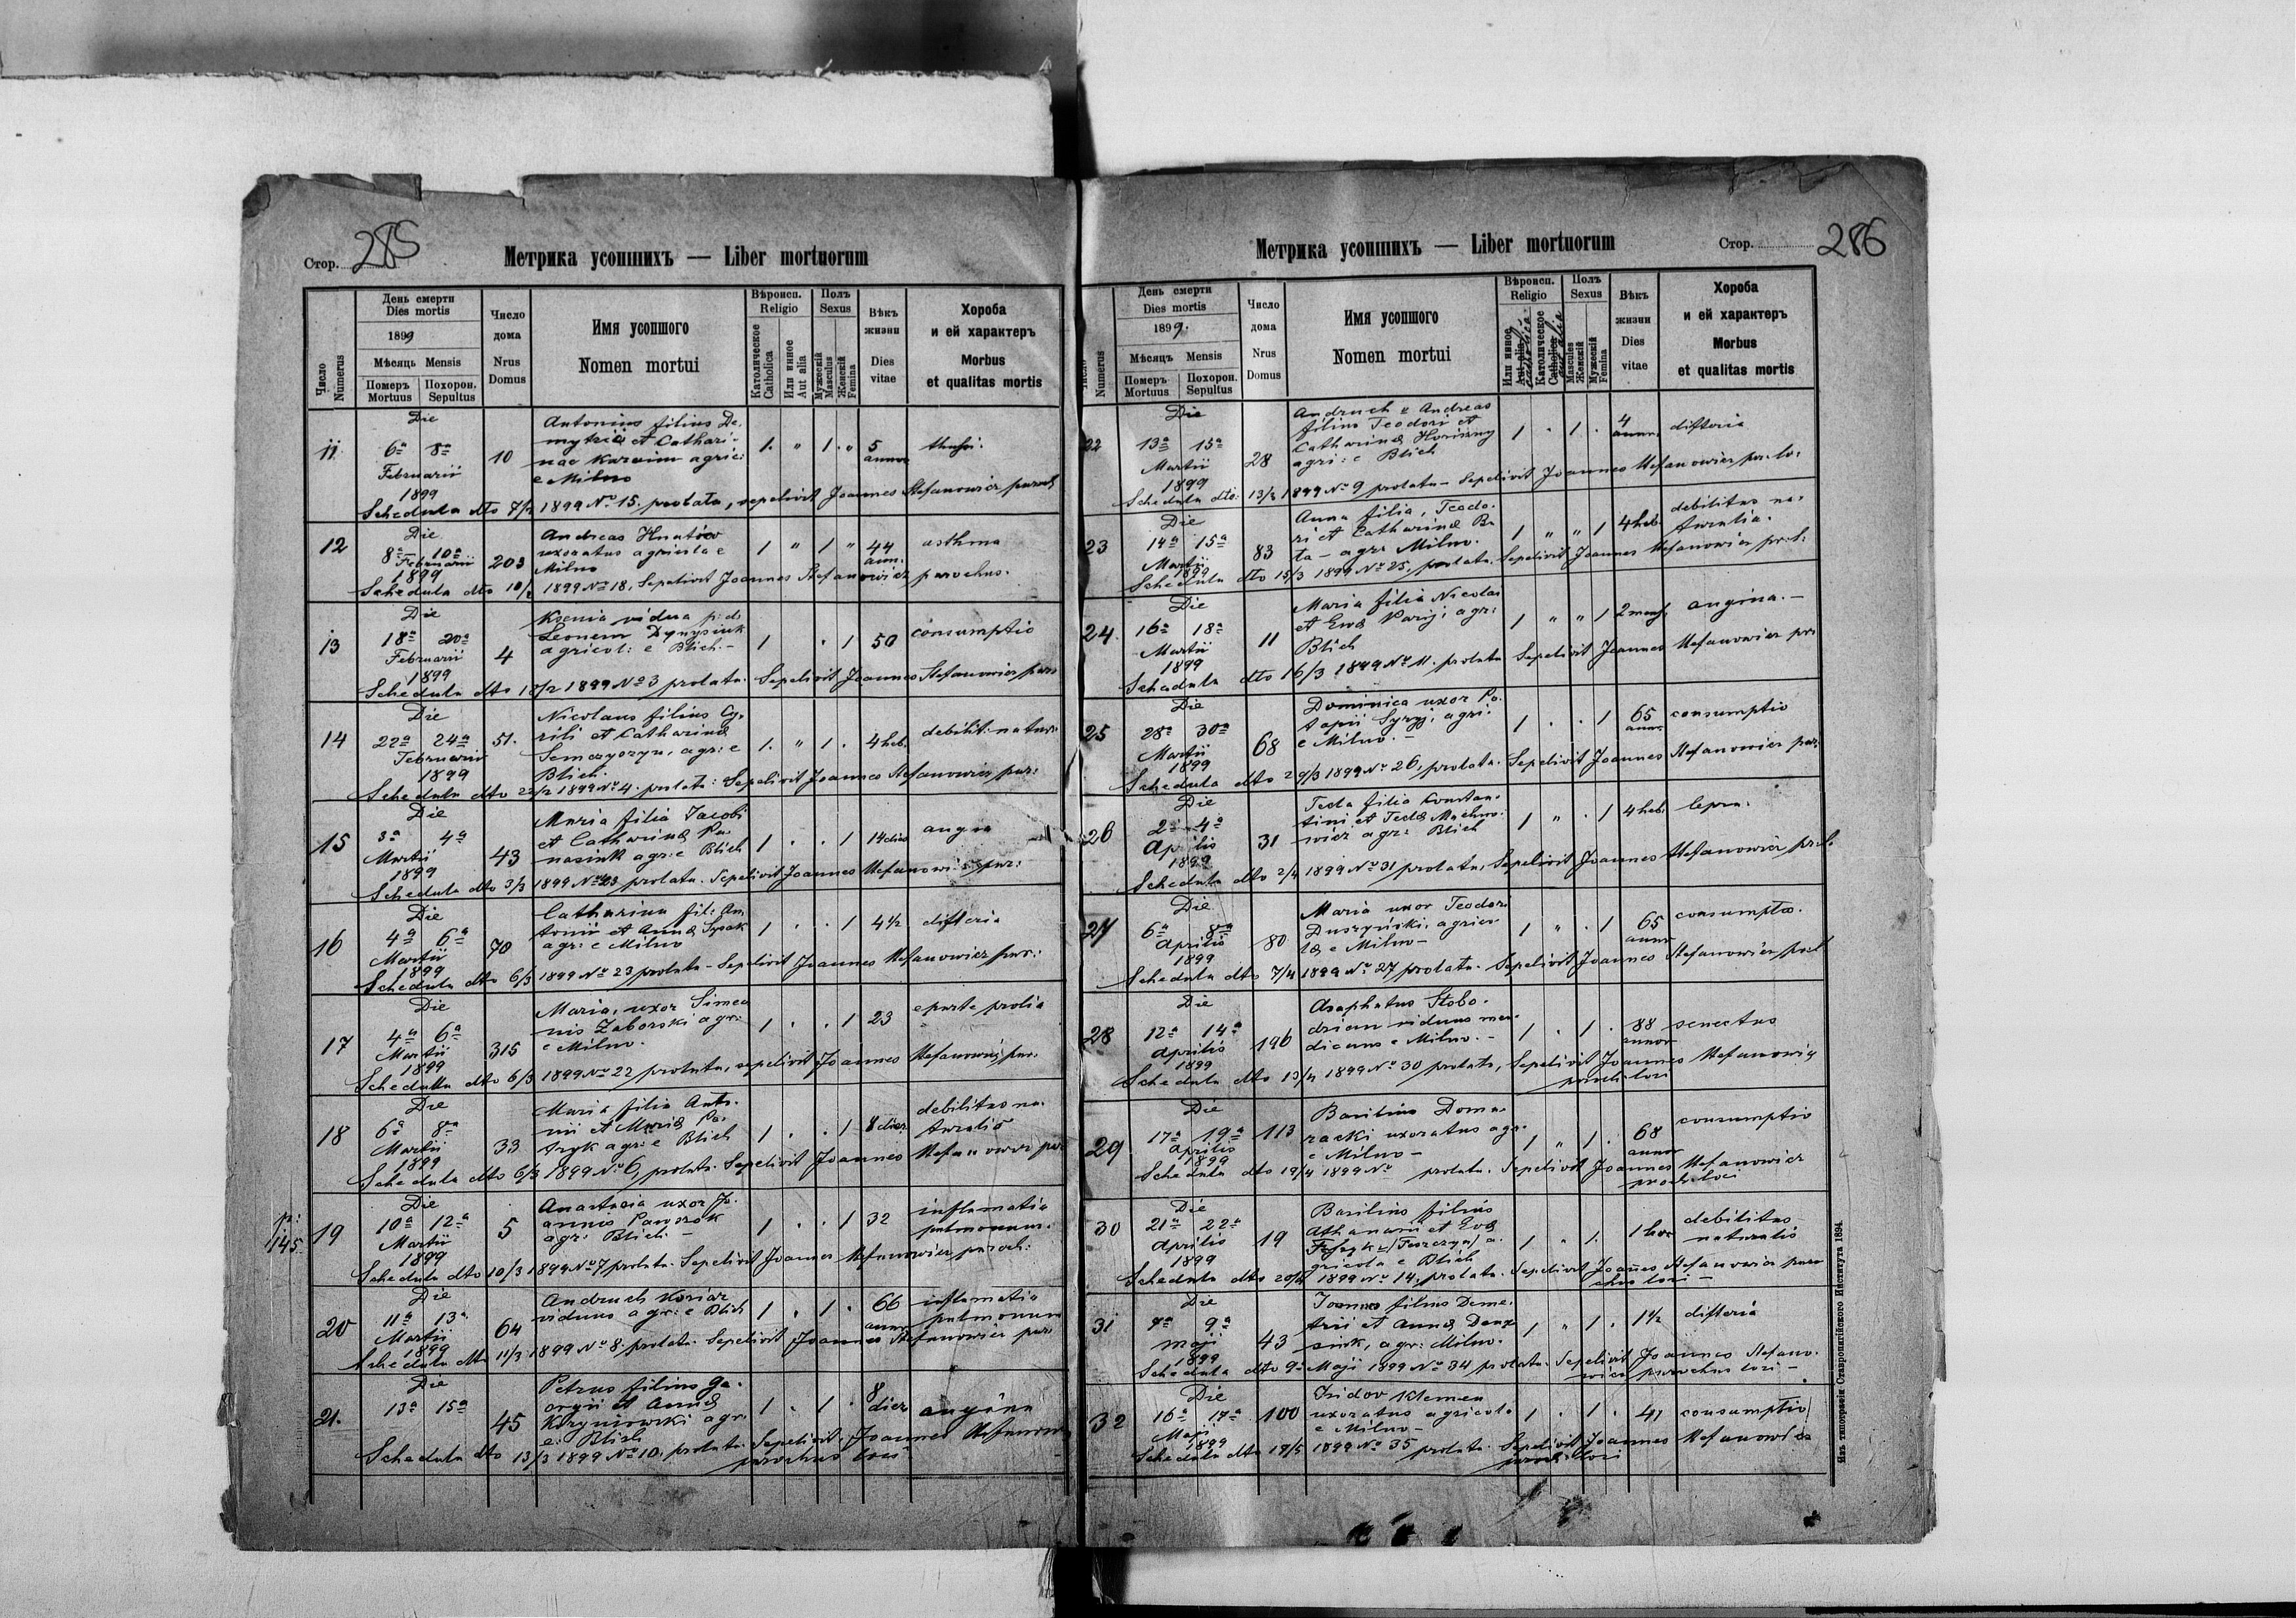 Стор. 285
Метрика усопшихъ — Liber mortuorum
Число Numerus
День смерти
Dies mortis
1899
Мѣсяць Mensis
Померъ Похорон.
Mortuus Sepultus
Число
дома
Nrus
Domus
Имя усопшого
Nomen mortui
Вѣроисп.
Religio
Католическое
Catholica
Или инное
Aut alia
Полъ
Sexus
Мужескій
Masculus
Женскій
Femina
Вѣкъ
жизни
Dies
vitae
Хороба
и ей характеръ
Morbus
et qualitas mortis
11
Die
6ª 8ª
Februarii
1899
10
Antonius filius De.
mytrii et Cathari-
nae agric:
e Milno
1. " 1. "
5
annor
Schedula dto 7/2 1899 Nº 15. prolata, sepelivit Joannes Stefanowicz paroch
12
Die
8ª 10ª
Februarii
1899
203
Andreas Hnatów
uxoratus agricola e
Milno
1 " 1 "
44
ann.
asthma
Schedula dto 10/2 1899 Nº 18, Sepelivit Joannes Stefanowicz parochus.
13
Die
18ª 20ª
Februarii
1899
4
Ksenia vidua p: d:
Leonem Dynysiuk
agricol: e Blich. -
1 . 1
50
consumptio
Schedula dto 1899 Nº 3 prolata. Sepelivit Joannes Stefanowicz par:
14
Die
22ª 24ª
Februarii
1899
51.
Nicolaus filius Cy-
rili et Catharinæ
Semczyczyn, agr: e
Blich.
1. " 1 .
4 heb.
debilit: natur:
Schedula dto 1899 Nº 4. prolata: Sepelivit Joannes Stefanowicz par:
15
Die
3ª 4ª
Martii
1899
43
Maria filia Jacobi
et Catharinæ Pa-
nasiuk agr: e Blich
1 . . 1
14 dies
Schedula dto 3/3 1899 Nº prolata. Sepelivit Joannes Stefanowicz par:
16
Die
4ª 6ª
Martii
1899
70
Catharina fil: An
tonii et Annæ Sysak
agr: e Milno
1 . . 1
4½
difteria
Schedula dto 6/3 1899 Nº 23 prolata - Sepelivit Joannes Stefanowicz par:
17
Die
4ª 6ª
Martii
1899
315
Maria, uxor Simeo
nis Zaborski agr:
e Milno.
1 . . 1
23
e parte prolis
Schedula dto 6/3 1899 Nº 22 prolata, sepelivit Joannes Stefanowicz par:
18
Die
6ª 8ª
Martii
1899
33
Maria filia Anto.
nii et Mariæ Pa-
tryk agr: e Blich
1 . . 1
8 dies
debilitas na.
turalis
Schedula dto 6/3 1899 Nº 6, prolata. Sepelivit Joannes Stefanowicz par
p:
145
19
Die
10ª 12ª
Martii
1899
5
Anastasia uxor Jo.
annis
agr: Blich -
1 . . 1
32
inflamatio
pulmonum.
Schedula dto 10/3 1899 Nº 7 prolata. Sepelivit Joannes Stefanowicz paroch:
20
Die
11ª 13ª
Martii
1899
64
Andruch Koriar
viduus agr: e Blich
1 . 1 .
66
annor
inflamatio
pulmonum
Schedula dto 11/3 1899 Nº 8. prolata. Sepelivit Joannes Stefanowicz par:
21.
Die
13ª 15ª
45
Petrus filius Ge.
orgii et Annæ
Krzyniowski agr:
e: Blich
1 . 1 .
8
dies
angina
Schedula dto 13/3 1899 Nº 10, prolata. Sepelivit Joannes Stefanowicz
parochus loci
Метрика усопшихъ — Liber mortuorum
Стор. 286
Число Numerus
День смерти
Dies mortis
1899.
Мѣсяць Mensis
Померъ Похорон.
Mortuus Sepultus
Число
дома
Nrus
Domus
Имя усопшого
Nomen mortui
Вѣроисп.
Religio
Или инное
Aut alia
catholica
Католическое
Catholica
aut alia
Полъ
Sexus
Masculus
Женскій
Мужескій
Femina
Вѣкъ
жизни
Dies
vitae
Хороба
и ей характеръ
Morbus
et qualitas mortis
22
Die
13ª 15ª
Martii
1899
28
Andruch v Andreas
filius Teodori et
Catharinæ
agri: e Blich
1 . 1 .
4
annor.
difteria
Schedula dto: 13/3 1899 Nº 9 prolata - Sepelivit Joannes Stefanowicz par: lo:
23
Die
14ª 15ª
Martii
1899
83
Anna filia, Teodo-
ri et Catharinæ Ba
ta - agr: Milno.
1 " " 1
4 heb.
debilitas na.
turalis.
Schedula dto 15/3 1899 Nº 25, prolata. Sepelivit Joannes Stefanowicz par: l:
24.
Die
16ª 18ª
Martii
1899
11
Maria filia Nicolai
et Evæ agr:
Blich
1 " " 1
2 mens.
angina. -
Schedula dto 16/3 1899 Nº 11. prolata Sepelivit Joannes Stefanowicz par
25
Die
28ª 30ª
Martii
1899
68
Dominica uxor Po.
tapii Syzyj, agri:
e Milno. -
1 . . 1
65
ann.
consumptio
Schedula dto 29/3 1899 Nº 26, prolata. Sepelivit Joannes Stefanowicz par:
26
Die
2ª 4ª
Aprilis
1899
31
Tecla filia Constan.
tini et Teclæ Machno.
wicz agr: Blich
1 " . 1
4 heb.
lepra.
Schedula dto 2/4 1899 Nº 31 prolata, Sepelivit Joannes Stefanowicz par: l.
27
Die
6ª 8ª
Aprilis
1899
80
Maria uxor Teodori
Duszyński, agrico-
læ e Milno -
1 " . 1
65
annor
consumptio.
Schedula dto 7/4 1899 Nº 27 prolata. Sepelivit Joannes Stefanowicz par: l
28
Die
12ª 14ª
Aprilis
1899
196
Asaphatus Słobo.
drian viduus men
dicans e Milno. -
1 . 1 .
88
annor
senectus
Schedula dto 13/4 1899 Nº 30 prolata, Sepelivit Joannes Stefanowicz
paroch: loci
29
Die
17ª 19ª
Aprilis
1899
113
Basilius Doma.
racki uxoratus agr.
e Milno -
1 " 1 .
68
annor
consumptio
Schedula dto 19/4 1899 Nº prolata. Sepelivit Joannes Stefanowicz
paroch: loci
30
Die
21ª 22ª
Aprilis
1899
19
Basilius filius
Athanasii et Evæ
a.
gricola e Blich
1 " 1.
1 hor
debilitas
naturalis
Schedula dto 1899 Nº 14, prolata. Sepelivit Joannes Stefanowicz paro
chus loci -
31
Die
7ª 9ª
Maji
1899
43
Joannes filius Deme.
trii et Annæ Deny
siuk, agr: Milno.
1 " 1 .
1½
difteria
Schedula dto 9ª Maji 1899 Nº 34 prolata. Sepelivit Joannes Stefano.
wicz parochus loci -
32
Die
16ª 17ª
Maji
1899
100
Isidor Klemen
uxoratus agricola
e Milno -
1 . 1 .
41
consumptio
Schedula dto 1899 Nº 35 prolata. Sepelivit Joannes Stefanowicz
paroch: loci
Изъ типографіи Ставропигійского Института 1894.